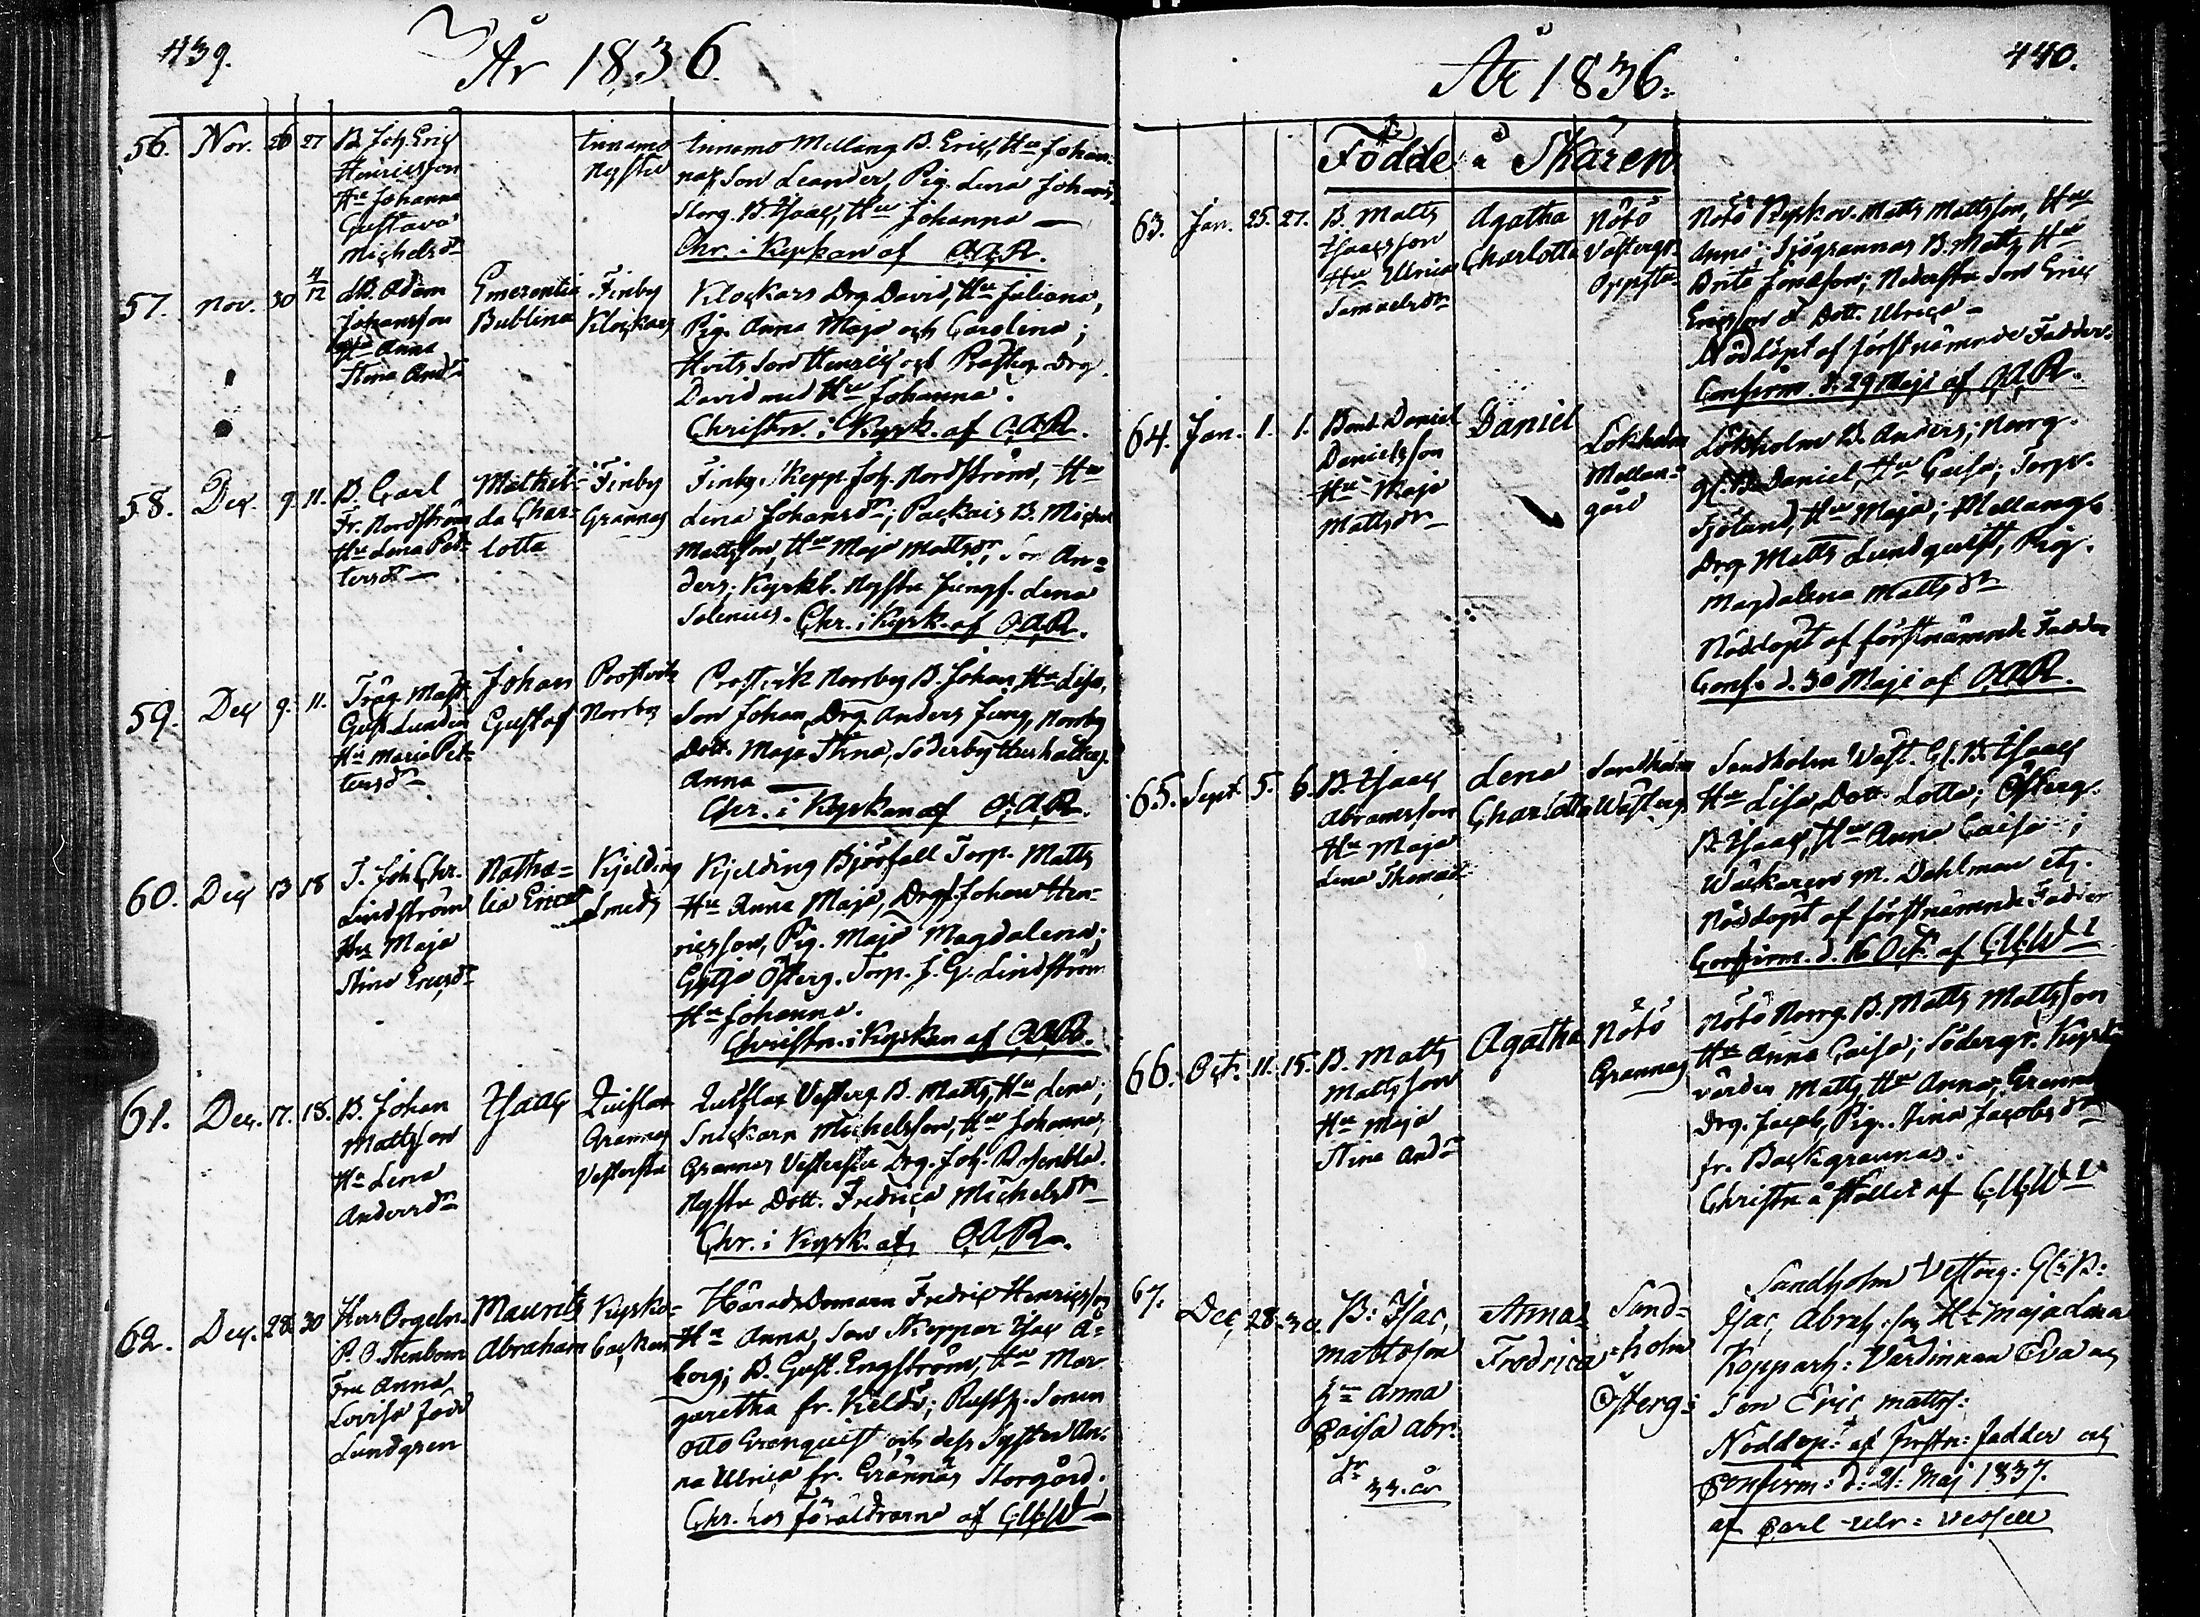 439.
År 1836
56. Nov. 26 27 B. Joh. Eric
Henricsson
Hu Johanna
Gustava
Michelsdr
Innamo
Nystu
Innamo Mellang B. Eric, Hu Johan-
nas Son Leander, Pig. Lena Johans
Storg. B. Isaac, Hu Johanna
Chr. i Kyrkan af O.A.R.
57. Nov. 30 4/12 B. Adam
Johansson
Hu Anna
Stina Andr
Emerentia
Bublina
Finby
Klockars
Klockars Drg David, Hu Juliana,
Pig. Anna Maja och Carolina;
Hvits Son Henric och Drg
David med Hu Johanna.
Christn. i Kyrk. af O.A.R.
58. Dec. 9. 11. B. Carl
Fr. Nordström
Hu Lena Pet-
tersdr
Mathil-
da Char-
lotta
Finby
Grannas
Finby Skepp. Joh. Nordström, Hu
Lena Johansdr; Packais B. Michel
Mattsson, Hu Maja Mattsdr, Son An-
ders; Kyrkb. Nystu Jungf. Lena
Solenius. Chr. i Kyrk. af O.A.R.
59. Dec 9. 11. Träg. Mäst.
Gust. Lundin
Hu Maria Pet-
tersdr
Johan
Gustaf
Prostvik
Norrby
Prostvik Norrby B. Johan, Hu Lisa,
Son Johan, Drg. Anders Jung, Norrby
Dott. Maja Stina, Söderby Hushållag.
Anna
Chr. i Kyrkan af O.A.R.
60. Dec 13 18 T. Joh. Chr.
Lindström
Hu Maja
Stina Ericsdr
Natha-
lia Erica
Kjelding
Smeds
Kjelding Björsfall Torp. Matts
Hu Anna Maja, Drg Johan Hen-
ricsson, Pig. Maja Magdalena.
Gyttja Österg. Torp. J. G. Lindström
Hu Johanna.
Christn. i Kyrkan af O.A.R.
61. Dec. 17. 18. B. Johan
Mattsson
Hu Lena
Andersdr
Isaac
Qviflax
Grannas
Vesterstu
Qviflax Vesterg. B. Matts, Hu Lena;
Snickarn Michelsson, Hu Johanna,
Grannas Vesterstu Drg. Joh. Rosenblad.
Nystu Dott. Fredrica Michelsdr
Chr. i Kyrk. af O.A.R.
62. Dec. 28 30 Herr Orgeln.
P. O. Stenbom
Fru Anna
Lovisa född
Lundgren
Maurits
Abraham
Kyrko-
backen
HäradsDomarn Fredric Henricsson
Hu Anna, Son Skeppar Isac Å-
berg; B. Gust. Engström, Hu Mar-
garetha fr. Kieldö; Rustp. Sonen
Otto Cronquist och dess Syster An-
na Ulrica fr. Grännäs Storgård.
Chr. hos föräldrarne af C.U.W
440.
År 1836.
Födde å Skären
63. Jan. 25. 27. B. Matts
Isacsson
Hu Ulrica
Samuelsdr
Agatha
Charlotta
Nötö
Vestergr.
Oppstu
Nötö Kyrkov. Matts Mattsson, Hu
Anna; Sjögrannas B. Matts Hu
Brita Jonasson; Nederstu Son Eric
Ericsson o Dott. Ulrica
Nöddöpt af förstnämnde Fadder.
Confirm. d. 29 Maji af O.A.R.
64. Jan. 1. 1. Bond. Daniel
Danielsson
Hu Maja
Mattsdr
Daniel
Lökholm
Mellan-
gård
Lökholm B. Anders; Norrg.
Gl. B. Daniel, Hu Caisa; Torp.
Sjölund, Hu Maja; Mellangs
Drg. Matts Lundquist, Pig.
Magdalena Mattsdr
Nöddöpt af förstnämnde Fadder
Conf. d. 30 Maji af O.A.R.
65. Sept. 5. 6. B. Isaac
Abramsson
Hu Maja
Lena Thomasdr
Lena
Charlotta
Sandholm
Westerg.
Sandholm Vest. Gl. B. Isaac
Hu Lisa, Dott. Lotta; Österg.
B. Isaac, Hu Anna Caisa;
M. Dahlman etc.
Nöddöpt af förstnämnde Fadder
Confirm. d. 16 Oct. af C.U.W
66. Oct. 11. 15. B. Matts
Mattsson
Hu Maja
Stina Andr
Agatha
Nötö
Grannas
Nötö Norrg. B. Matts Mattsson
Hu Anna Caisa; Södergr. Kyrko-
värden Matts, Hu Anna; Grannas
Drg. Jacob, Pig. Stina Jacobsdr
fr. Backgrannas.
Christn. å stället af C.U.W
67. Dec, 28. 30. B: Isac,
Mattsson
Hu Anna
Caisa Abr.
dr 33. år
Anna
Fredrica
Sand-
holm
Österg:
Sandholm Vesterg: Gl: B:
Isac, Abrah:son Hu Maja Lena
Kopparh: Värdinnan Eva och
Son Eric Matts:
Nöddöp: af förstn: fadder och
Confirm: d: 21: Maj 1837.
af Carl Ulr: Wessell